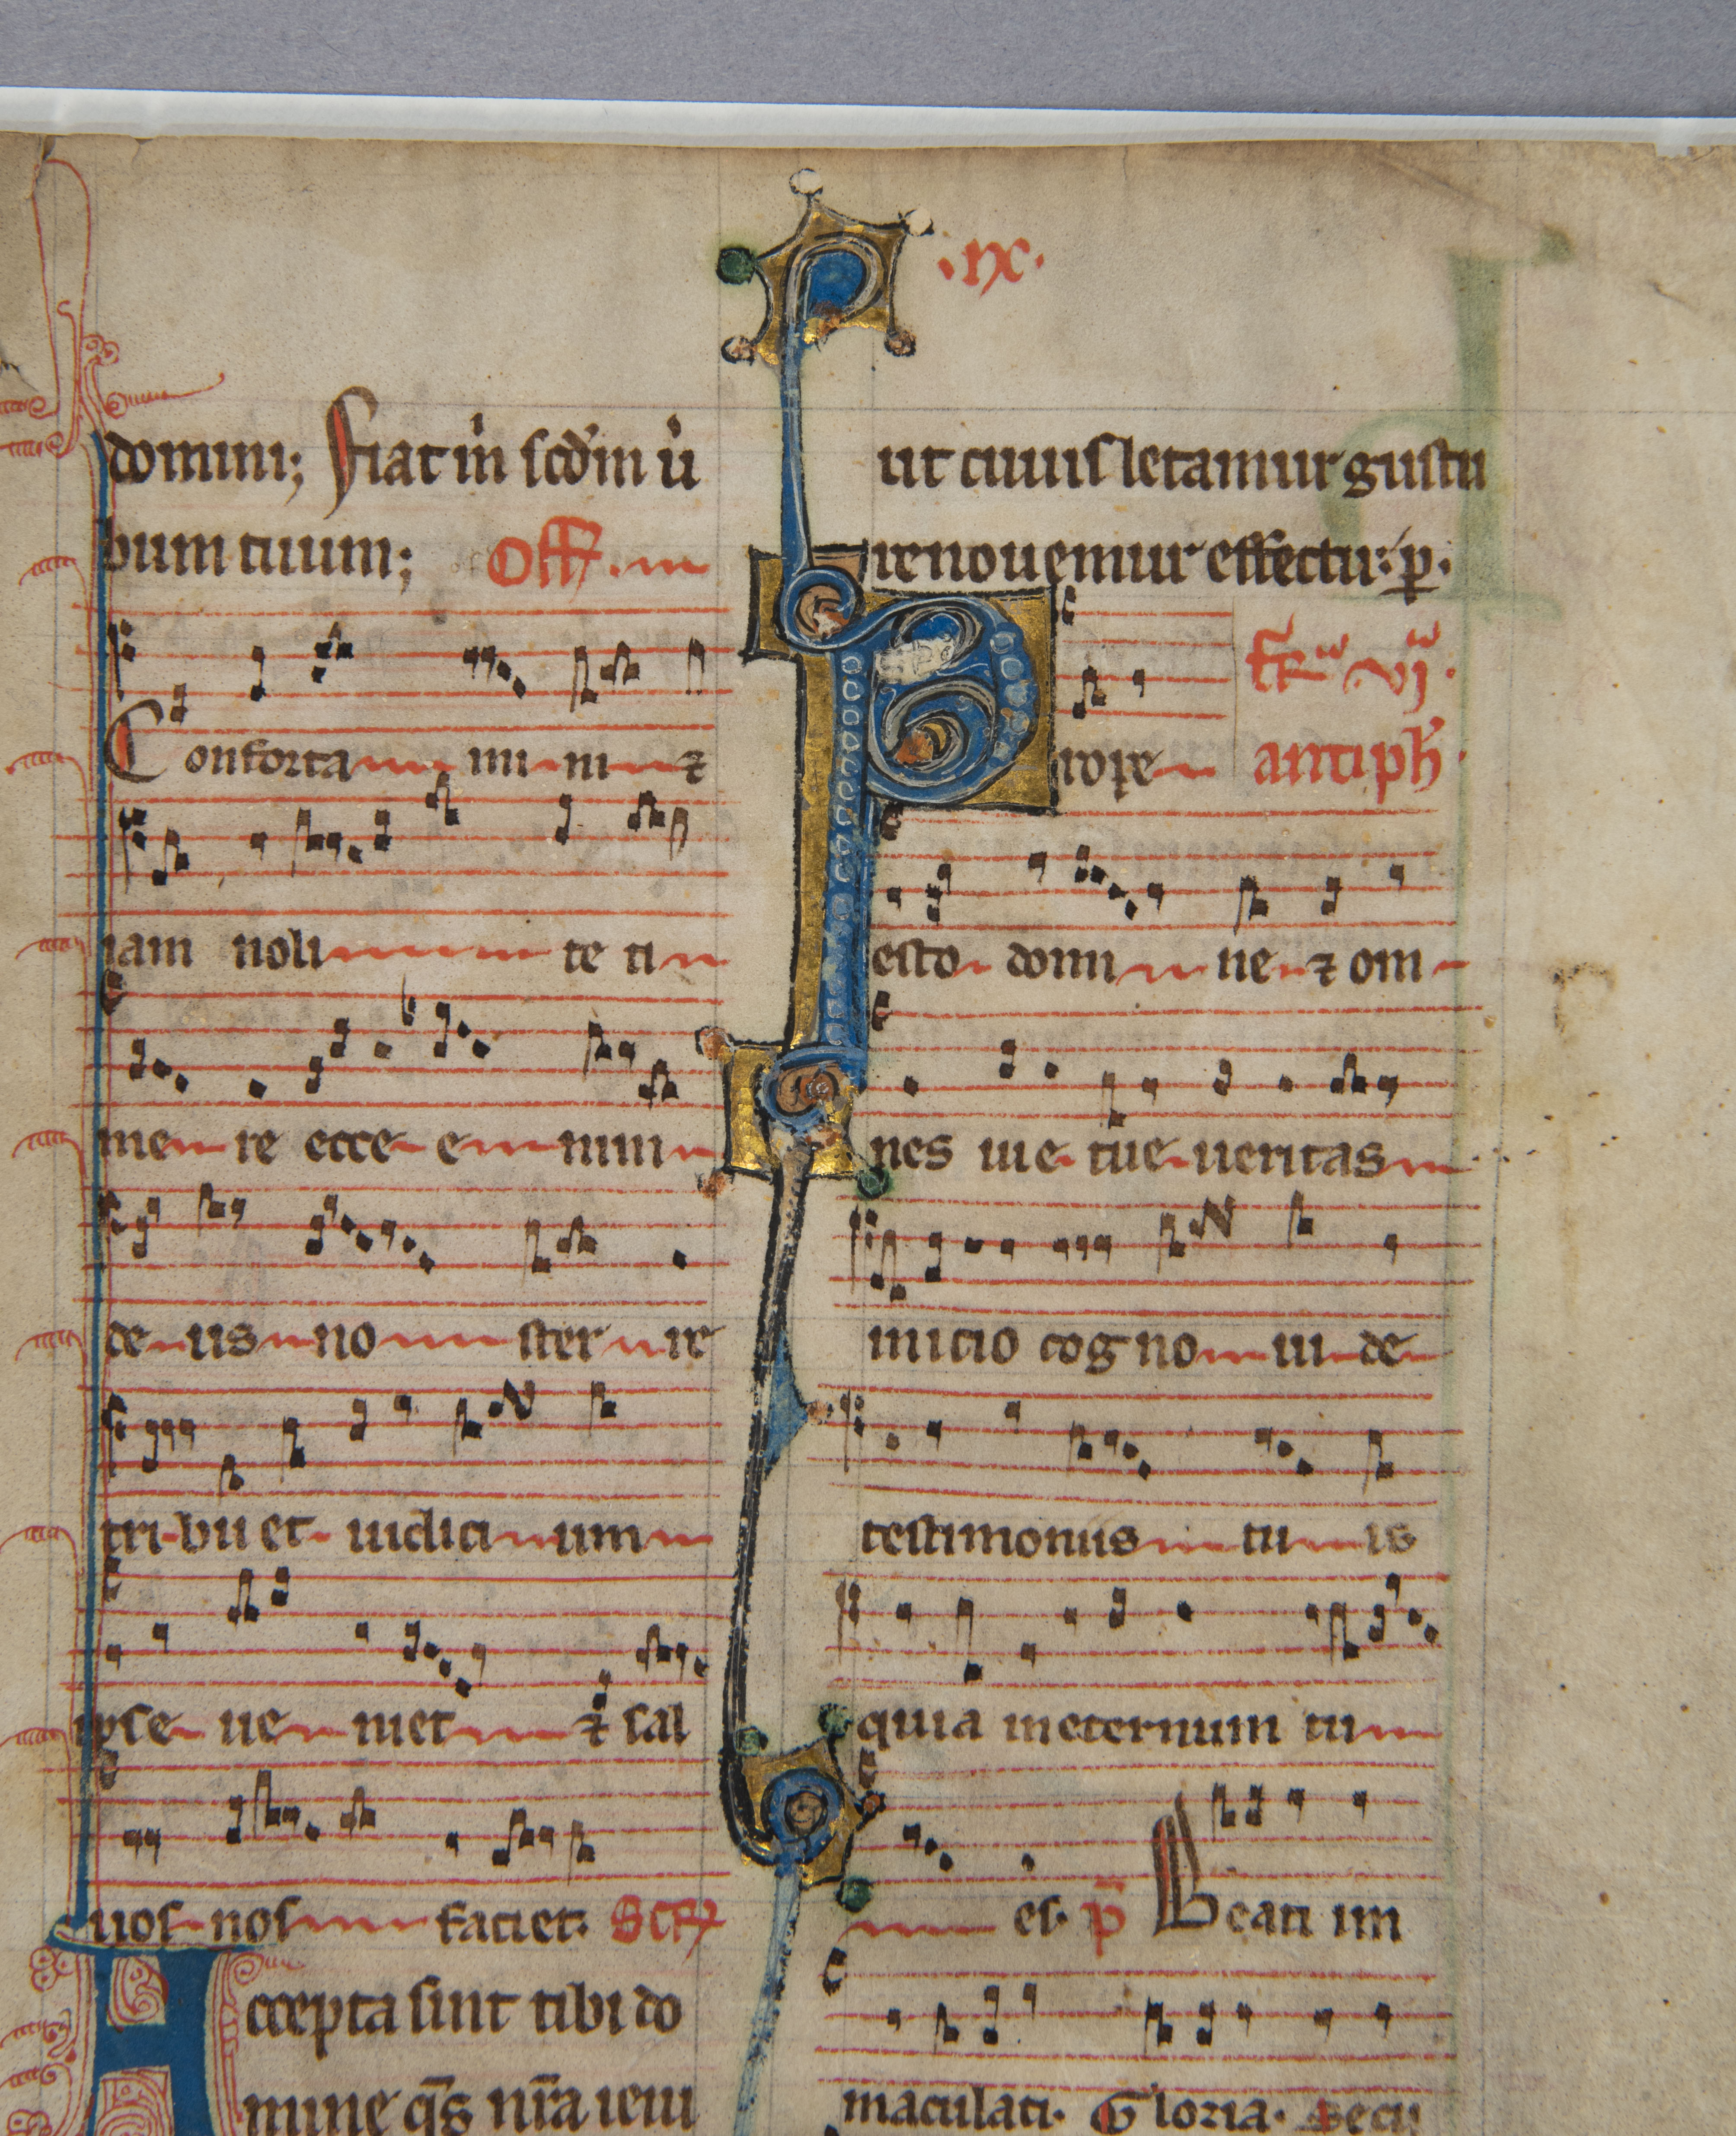 .ix.
domini; Fiat m̄ scd̄m u̾
bum tuum; Off.
Conforta mi ni ⁊
iam noli te ti
me re ecce e nim
de us no ster re
tri bu et iudici um
ipse ue niet ⁊ sal
uos nos faciet. Secr̄
Accepta sunt tibi do
mine q̄s nr̄a ieiu
ut cuius letamur gustu
renouemur effectu: p̱.
Prope fer̄ vj.
antiph̄.
esto domi ne ⁊ om
nes uie tue ueritas
inicio cogno ui de
testimoniis tu is
quia ineternum tu
es. p̄ Beati im
maculati. Gloria. Secu